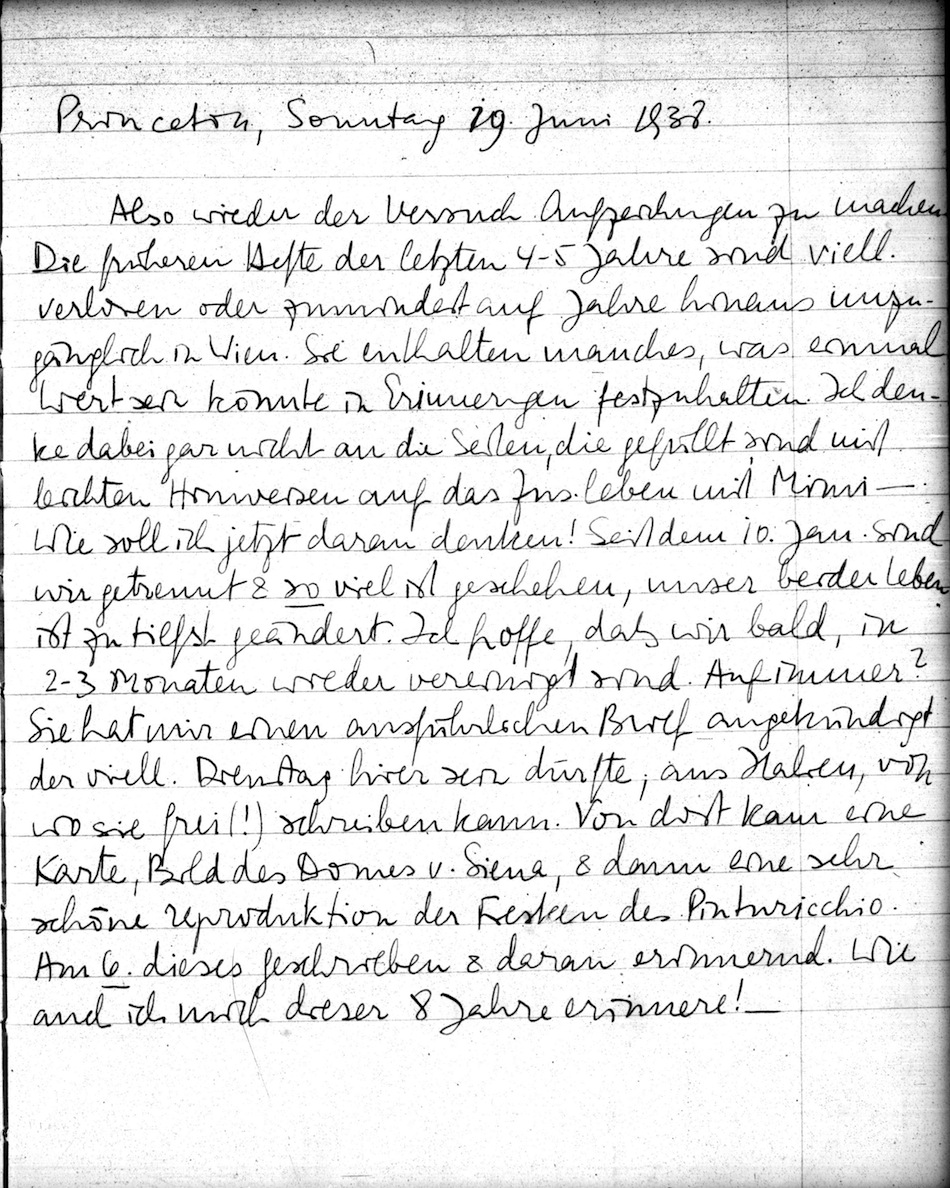 Princeton, Sonntag 19. Juni 1938.
Also wieder der Versuch Aufzeichungen zu machen
Die früheren Hefte der letzten 4-5 Jahre sind viell.
verloren oder zumindest auf Jahre hinaus unzu-
gänglich in Wien. Sie enthalten manches, was einmal
wert sein könnte in Erinnerungen festzuhalten. Ich den-
ke dabei gar nicht an die Seiten, die gefüllt sind mit
leichten Hinweisen auf das Zus.leben mit Mimi —.
Wie soll ich jetzt daran denken! Seit dem 10. Jan. sind
wir getrennt & so viel ist geschehen, unser beider Leben
ist zu tiefst geändert. Ich hoffe, daß wir bald, in
2-3 Monaten wieder vereinigt sind. Auf immer?
Sie hat mir einen ausführlichen Brief angekündigt
der viell. Dienstag hier sein dürfte, aus Italien, von
wo sie frei (!) schreiben kann. Von dort kam eine
Karte, Bild des Domes v. Siena, & dann eine sehr
schöne reproduktion der Fresken des Pinturicchio.
Am 6. dieses geschrieben & daran erinnernd. Wie
auch ich mich dieser 8 Jahre erinnere! —